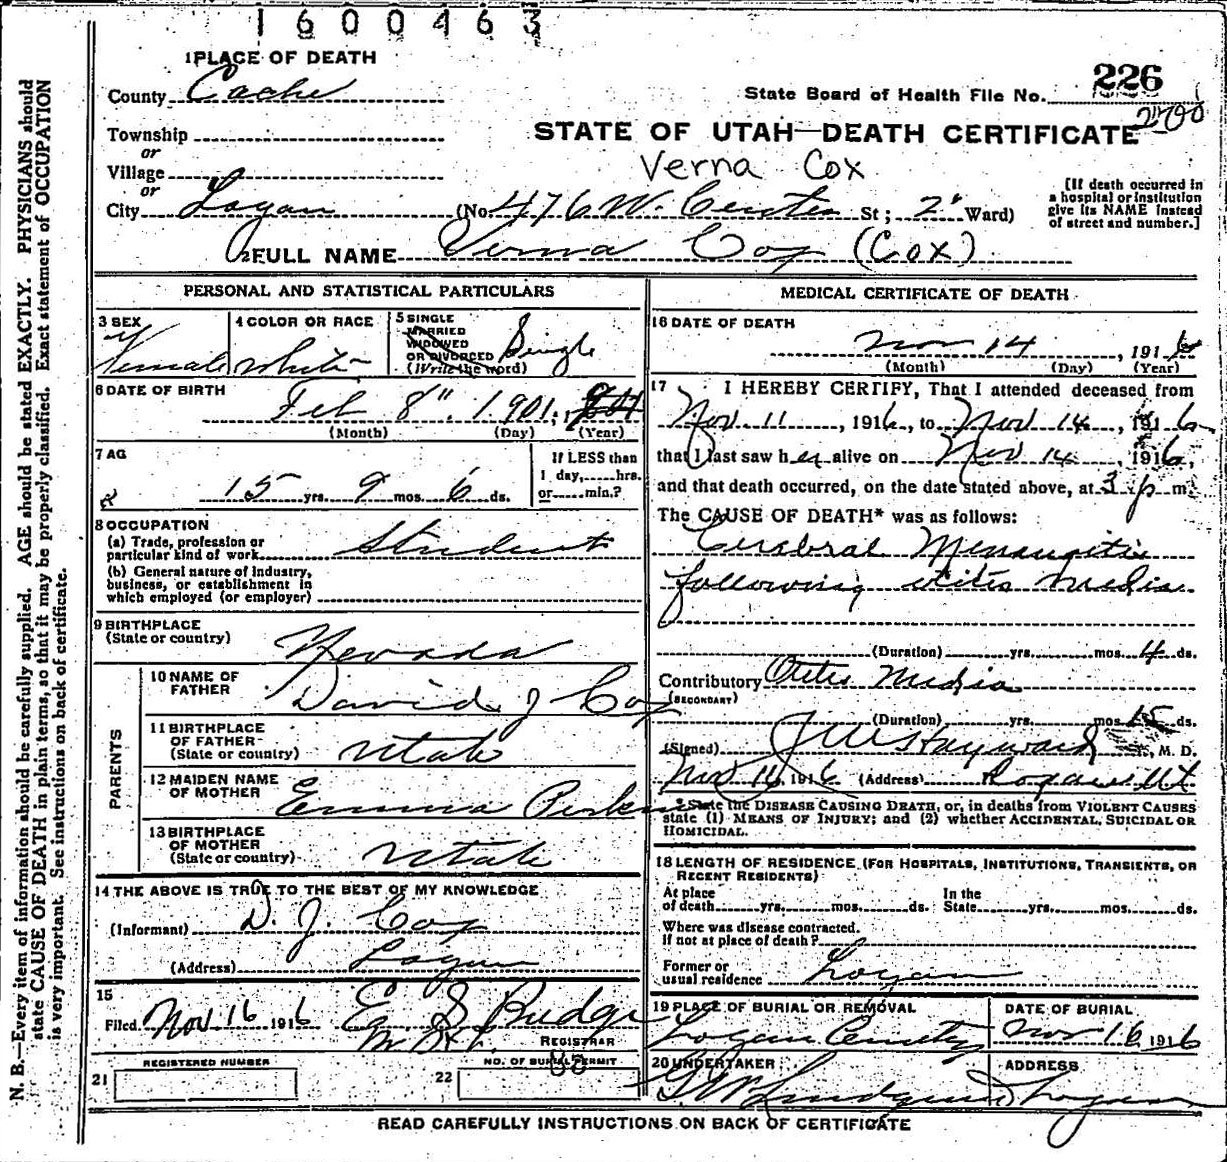 1600463
1 PLACE OF DEATH
County Cache
226
State Board of Health File No.
Township
or
STATE OF UTAH—DEATH CERTIFICATE
Village
or
Verna Cox
City Logan (No. 476 W. Center St; 2" Ward)
[If death occurred in
a hospital or institution
give its NAME instead
of street and number.]
2 FULL NAME Verna Cox (Cox)
PERSONAL AND STATISTICAL PARTICULARS
3 SEX Female
4 COLOR OR RACE White
5 SINGLE
MARRIED
WIDOWED
OR DIVORCED
(Write the word)
Single
6 DATE OF BIRTH
Feb 8" 1901
(Month) (Day) (Year)
7 AG
15 yrs. 9 mos. 6 ds.
If LESS than
1 day, hrs.
or min.?
8 OCCUPATION
(a) Trade, profession or
particular kind of work Student
(b) General nature of Industry,
business, or establishment in
which employed (or employer)
9 BIRTHPLACE
(State or country) Nevada
PARENTS
10 NAME OF
FATHER David J Cox
11 BIRTHPLACE
OF FATHER
(State or country) Utah
12 MAIDEN NAME
OF MOTHER Emma Perkins
13 BIRTHPLACE
OF MOTHER
(State or country) Utah
14 THE ABOVE IS TRUE TO THE BEST OF MY KNOWLEDGE
(Informant) D. J. Cox
(Address) Logan
15
Filed Nov 16 1916 E S Budge
REGISTRAR
REGISTERED NUMBER
21
NO. OF BURIAL PERMIT
22
MEDICAL CERTIFICATE OF DEATH
16 DATE OF DEATH
Nov 14, 1916
(Month) (Day) (Year)
17 I HEREBY CERTIFY, That I attended deceased from
Nov. 11, 1916, to Nov 14, 1916
that I last saw her alive on Nov 14, 1916,
and that death occurred, on the date stated above, at 3 p m.
The CAUSE OF DEATH* was as follows:
Cerebral Menangitis
following otitis media
(Duration) yrs. mos. 4 ds.
Contributory Otitis Media
(SECONDARY)
(Duration) yrs. mos. 15 ds.
(Signed) J W Hayward M. D.
Nov 16 1916 (Address) Logan Ut
* State the DISEASE CAUSING DEATH, or, in deaths from VIOLENT CAUSES
state (1) MEANS OF INJURY; and (2) whether ACCIDENTAL, SUICIDAL OR
HOMICIDAL.
18 LENGTH OF RESIDENCE (FOR HOSPITALS, INSTITUTIONS, TRANSIENTS, OR
RECENT RESIDENTS)
At place
of death yrs. mos. ds.
In the
State yrs. mos. ds.
Where was disease contracted.
If not at place of death?
Former or
usual residence Logan
19 PLACE OF BURIAL OR REMOVAL
Logan Cemetery
DATE OF BURIAL
Nov 16 1916
20 UNDERTAKER
ADDRESS
Logan
READ CAREFULLY INSTRUCTIONS ON BACK OF CERTIFICATE
N. B.—Every item of information should be carefully supplied. AGE should be stated EXACTLY. PHYSICIANS should
state CAUSE OF DEATH in plain terms, so that it may be properly classified. Exact statement of OCCUPATION
is very important. See instructions on back of certificate.